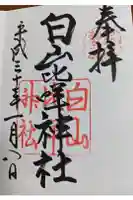 奉拝
白山比咩神社
平成三十年一月八日